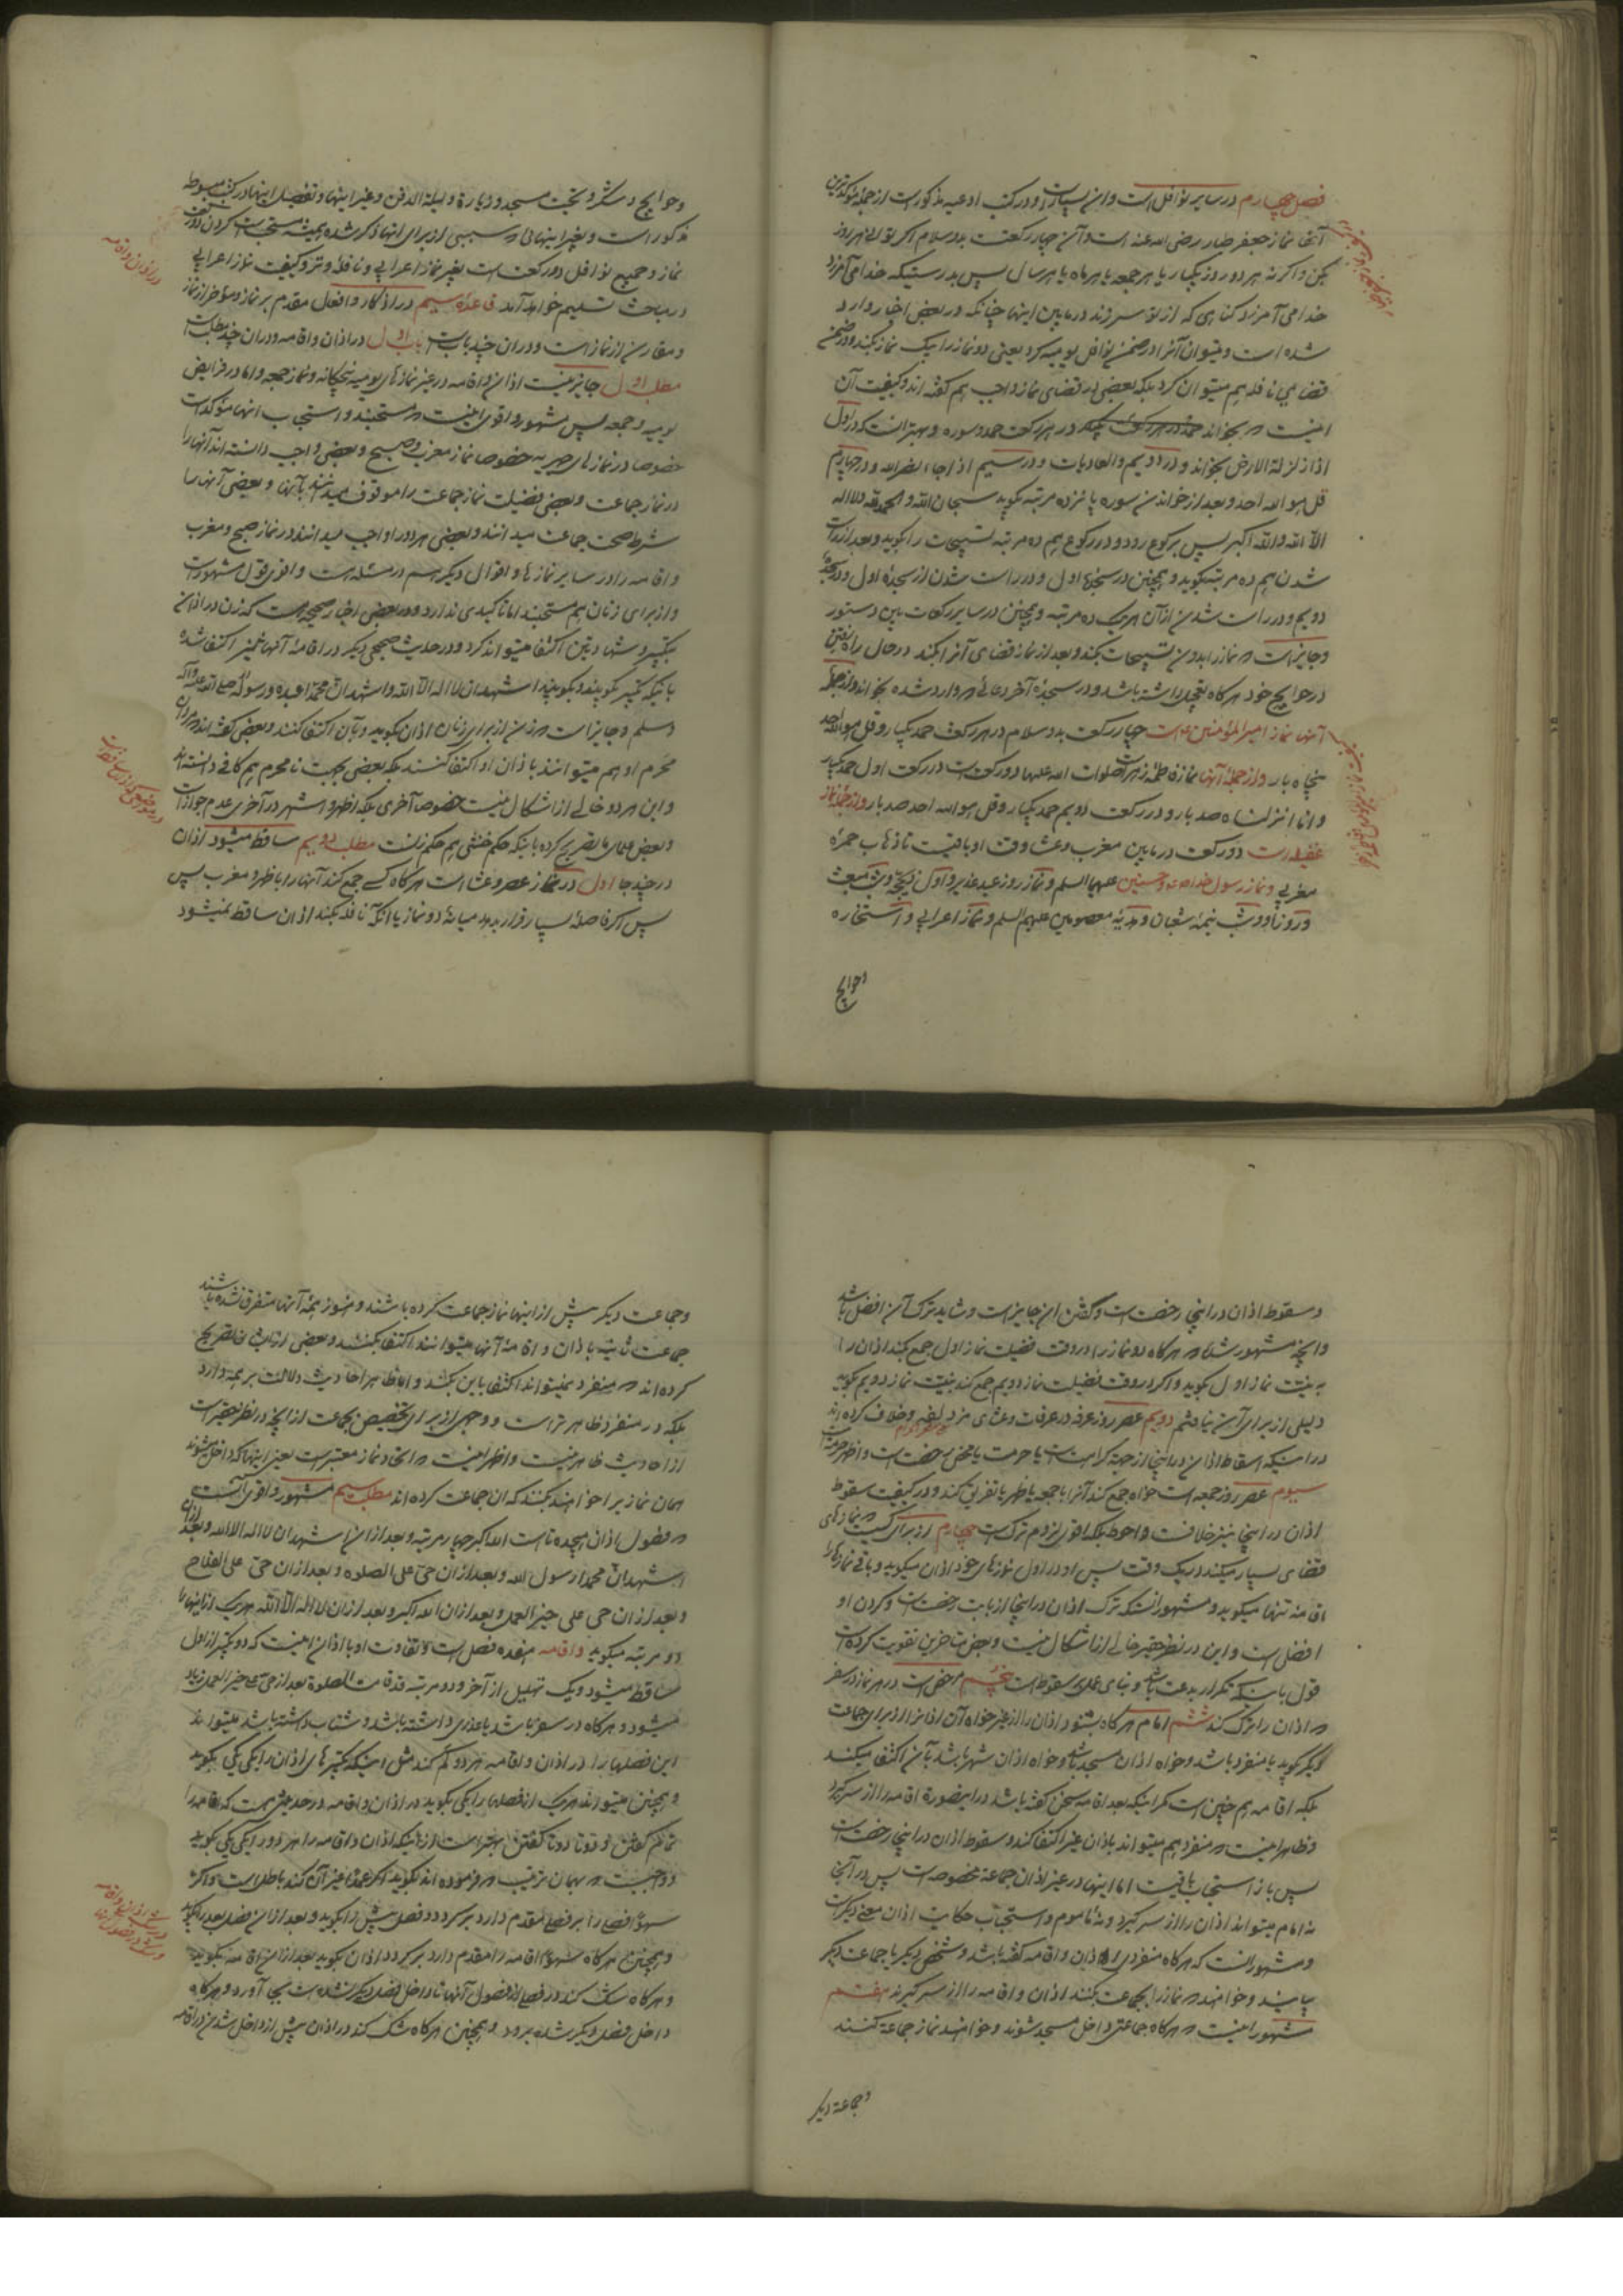 فصل چهارم در سایر نوافل است و این بسیار است و در کتب ادعیه مذکور است از جمله مؤکدترین
آنها نماز جعفر طیار رضی الله عنه است و آن چهار رکعت بدو سلام اگر توانی هر روز
بکن و اگر نه هر دو روز یکبار یا هر جمعه یا هر ماه یا هر سال پس بدرستیکه خدا می آمرزد
خدا می آمرزد گناهی که از تو سر زند در مابین اینها چنانکه در بعضی اخبار وارد
شده است و میتوان آنرا در ضمن نوافل یومیه کرد یعنی دو نماز را یک نماز بکند و در ضمن
قضای نافله هم میتوان کرد بلکه بعضی در قضای نماز واجب هم گفته اند و کیفیت آن
اینست که بخواند در هر رکعت حمد و سوره و بهتر آنست که در اول
اذا زلزلة الارض بخواند و در دویم والعادیات و در سیم اذا جاء نصر الله و در چهارم
قل هو الله احد و بعد از خواندن سوره پانزده مرتبه بگوید سبحان الله والحمد لله ولا اله
الا الله والله اکبر پس برکوع رود و در رکوع هم ده مرتبه تسبیحات را بگوید و بعد از راست
شدن هم ده مرتبه بگوید و همچنین در سجده اول و در راست شدن از سجده اول و در سجده
دویم و در راست شدن از آن هر یک ده مرتبه و همچنین در سایر رکعات باین دستور
و جایز است که نماز را بدون تسبیحات بکند و بعد از نماز قضای آنرا بکند در حال راه رفتن
در حوایج خود هر گاه تعجیل داشته باشد و در سجده آخر دعائی که وارد شده بخواند و از جمله
آنها نماز امیر المؤمنین ع است چهار رکعت بدو سلام در هر رکعت حمد یکبار و قل هو الله احد
پنجاه بار و از جمله آنها نماز فاطمه زهرا صلوات الله علیها دو رکعت است در رکعت اول حمد یکبار
و انا انزلناه صد بار و در رکعت دویم حمد یکبار و قل هو الله احد صد بار و از جمله نماز
غفیله است دو رکعت در مابین مغرب و عشا وقت او باقیست تا ذهاب حمره
مغربی و نماز رسول خدا ص و حسنین علیهما السلم و نماز روز عید غدیر و اول ذیحجه و شب مبعث
و روز او و شب نیمه شعبان و هدیه معصومین علیهم السلم و نماز اعرابی و استخاره
وحوایج
وحوایج و شکر و تحیت مسجد و زیارة و لیلة الدفن و غیر اینها و تفصیل اینها در کتب مبسوطه
مذکور است و بغیر اینهائی که سببی از برای آنها ذکر شده همیشه مستحب است کردن دو رکعت
نماز و جمیع نوافل دو رکعت است بغیر نماز اعرابی و نافله وتر و کیفیت نماز اعرابی
در مبحث تسلیم خواهد آمد قاعده سیم در اذکار و افعال مقدم بر نماز و مؤخر از نماز
و مقارن از نماز است و در آن چند بابست باب اول در اذان و اقامه و در آن چند مطلبست
مطلب اول جایز نیست اذان و اقامه در غیر نمازهای یومیه پنجگانه و نماز جمعه و اما در فرایض
یومیه و جمعه پس مشهور و اقوی اینست که مستحبند و استحباب آنها مؤکد است
خصوصا در نمازهای جهریه خصوصا نماز مغرب و صبح و بعضی واجب دانسته اند آنها را
در نماز جماعت و بعضی فضیلت نماز جماعت را موقوف میدانند بآنها و بعضی آنها را
شرط صحت جماعت میدانند و بعضی هر دو را واجب میدانند در نماز صبح و مغرب
و اقامه را در سایر نمازها و اقوال دیگر هم در مسئله هست و اقوی قول مشهور است
و از برای زنان هم مستحبند اما تاکیدی ندارد و در بعضی اخبار صحیحه است که زن در اذان
بتکبیر و شهادتین اکتفا میتواند کرد و در حدیث صحیح دیگر در اقامه آنها نیز اکتفا شده
باینکه تکبیر گویند و بگویند اشهد ان لا اله الا الله و اشهد ان محمدا عبده و رسوله صلی الله علیه و آله
و سلم و جایز است که زن از برای زنان اذان بگوید و بآن اکتفا کنند و بعضی گفته اند که مردان
محرم او هم میتوانند باذان او اکتفا کنند بلکه بعضی بجهت نامحرم هم کافی دانسته اند
و این هر دو خالی از اشکال نیست خصوصا آخری بلکه اظهر و اشهر در آخری عدم جواز است
و بعض علمای ما تصریح کرده باینکه حکم خنثی هم حکم زنست مطلب دویم ساقط میشود اذان
در چند جا اول در نماز عصر و عشا است هر گاه کسی جمع کند آنها را با ظهر و مغرب پس
پس اگر فاصله بسیار قرار بدهد میانه دو نماز یا آنکه نافله بکند اذان ساقط نمیشود
در اذان و اقامه
و سقوط اذان در اینجا رخصت است و گفتن او جایز است و شاید ترک آن افضل باشد
و آنچه مشهور شده که هر گاه دو نماز را در وقت فضیلت نماز اول جمع بکند اذان را
به نیت نماز اول بگوید و اگر در وقت فضیلت نماز دویم جمع کند بنیت نماز دویم بگوید
دلیلی از برای آن نیافتم دویم عصر روز عرفه در عرفات و عشای مزدلفه و خلاف کرده اند
در اینکه اسقاط اذان در اینجا از جهة کراهت است یا حرمت یا محض رخصت است و اظهر حرمتست
سیوم عصر روز جمعه است خواه جمع کند آنرا با جمعه یا ظهر یا تفریق کند و در کیفیت سقوط
اذان در اینجا نیز خلافست و احوط بلکه اقوی لزوم ترکست چهارم از برای کسیست که نمازهای
قضای بسیار میکند در یک وقت پس او در اول نمازهای خود اذان میگوید و باقی نمازها را
اقامه تنها میگوید و مشهور آنست که ترک اذان در اینجا از بابت رخصتست و کردن او
افضل است و این در نظر حقیر خالی از اشکال نیست و بعض متاخرین تقویت کرده است
قول باینکه تکرار بدعت باشد و بنای عمل بر سقوط است پنجم مرخص است در هر نماز در سفر
که اذان را ترک کند ششم امام هر گاه بشنود اذان را از غیر خواه آن اذان را از برای جماعت
دیگر گوید یا منفرد باشد و خواه اذان مسجد باشد و خواه اذان شهر باشد بآن اکتفا میکند
بلکه اقامه هم چنین است مگر اینکه بعد اقامه سخن گفته باشد در اینصورة اقامه را از سر گیرد
و ظاهر اینست که منفرد هم میتواند باذان غیر اکتفا کند و سقوط اذان در اینجا رخصتست
پس باز استحباب باقیست اما اینها در غیر اذان جماعة مخصوصه است پس در آنجا
نه امام میتواند اذان را از سر گیرد و نه ماموم و استحباب حکایت اذان معنی دیگر است
و مشهور آنست که هر گاه منفردی اذان و اقامه گفته باشد و شخص دیگر یا جماعت دیگر
بیایند و خواهند که نماز را بجماعت بکنند اذان و اقامه را از سر گیرند هفتم
مشهور اینست که هر گاه جماعتی داخل مسجد شوند و خواهند نماز جماعة کنند
وجماعة دیگر
وجماعت دیگر پیش از اینها نماز جماعت کرده باشند و هنوز همه آنها متفرق نشده باشند
جماعت ثانیه باذان و اقامه آنها میتوانند اکتفا بکنند و بعضی از ایشان تصریح
کرده اند که منفرد نمیتواند اکتفا باین بکند و اما ظاهر احادیث دلالت بر همه دارد
بلکه در منفرد ظاهر تر است و وجهی از برای تخصیص بجماعت از آنچه در نظر حقیر است
از احادیث ظاهر نیست و اظهر اینست که اتحاد نماز معتبر است یعنی اینها که داخل میشوند
همان نماز را خواهند بکنند که آن جماعت کرده اند مطلب سیم مشهور و اقوی آنست
که فصول اذان هیجده تا است الله اکبر چهار مرتبه و بعد از آن اشهد ان لا اله الا الله و بعد از آن
اشهد ان محمدا رسول الله و بعد از آن حی علی الصلوه و بعد از آن حی علی الفلاح
و بعد از آن حی علی خیر العمل و بعد از آن الله اکبر و بعد از آن لا اله الا الله هر یک از اینها را
دو مرتبه میگوید و اقامه هفده فصل است و تفاوت او با اذان اینست که دو تکبیر از اول
ساقط میشود و یک تهلیل از آخر و دو مرتبه قد قامت الصلوة بعد از حی علی خیر العمل زیاد
میشود و هر گاه در سفر باشد یا عذری داشته باشد و شتاب داشته باشد میتواند
این فصلها را در اذان و اقامه هر دو کم کند مثل اینکه تکبیرهای اذان را یکی یکی بگوید
و همچنین میتواند هر یک از فصلها را یکی بگوید در اذان و اقامه و در حدیثی هست که اقامه را
تمام گفتن و دوتا دوتا گفتن بهتر است از اینکه اذان و اقامه را هر دو را یکی یکی بگوید
و واجبست که بهمان ترتیب که فرموده اند بگوید اگر عمدا غیر آن کند باطل است و اگر
سهوا فصلی را بر فصلی مقدم دارد بر گردد و فصل پیش را بگوید و بعد از آن فصل بعد را بگوید
و همچنین هر گاه سهوا اقامه را مقدم دارد بر گردد اذان بگوید بعد از آن اقامه بگوید
و هر گاه شک کند در فصلی از فصول آنها تا داخل فصل دیگر نشده است بجا آورد و هر گاه
داخل فصل دیگر شده برود و همچنین هر گاه شک کند در اذان پیش از داخل شدن در اقامه